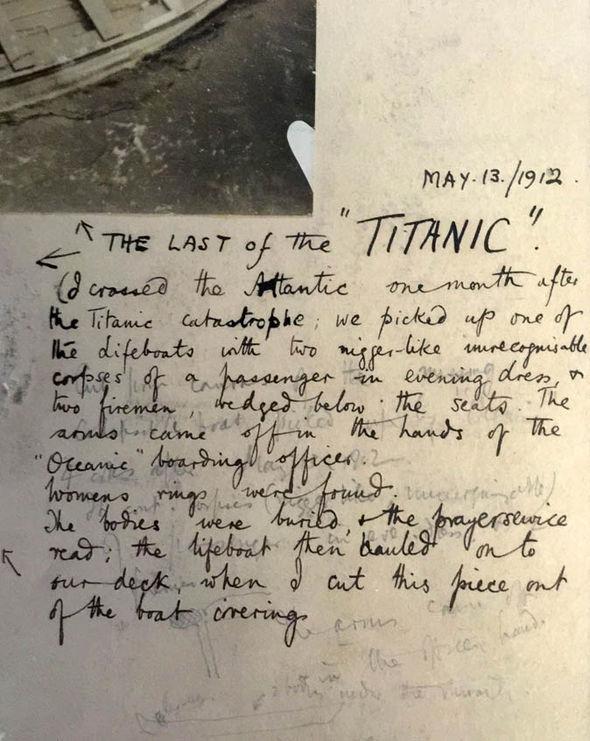 MAY.13./1912.
THE LAST of the "TITANIC".
(I crossed the Atlantic one month after
the Titanic catastrophe; we picked up one of
the lifeboats with two nigger-like unrecognisable
corpses of a passenger in evening dress, &
two firemen, wedged below the seats. The
arms came off in the hands of the
"Oceanic" boarding officer.
Womens rings were found.
The bodies were buried & the prayerservice
read; the lifeboat then hauled on to
our deck, when I cut this piece out
of the boat covering
the arms
in the officer's hands